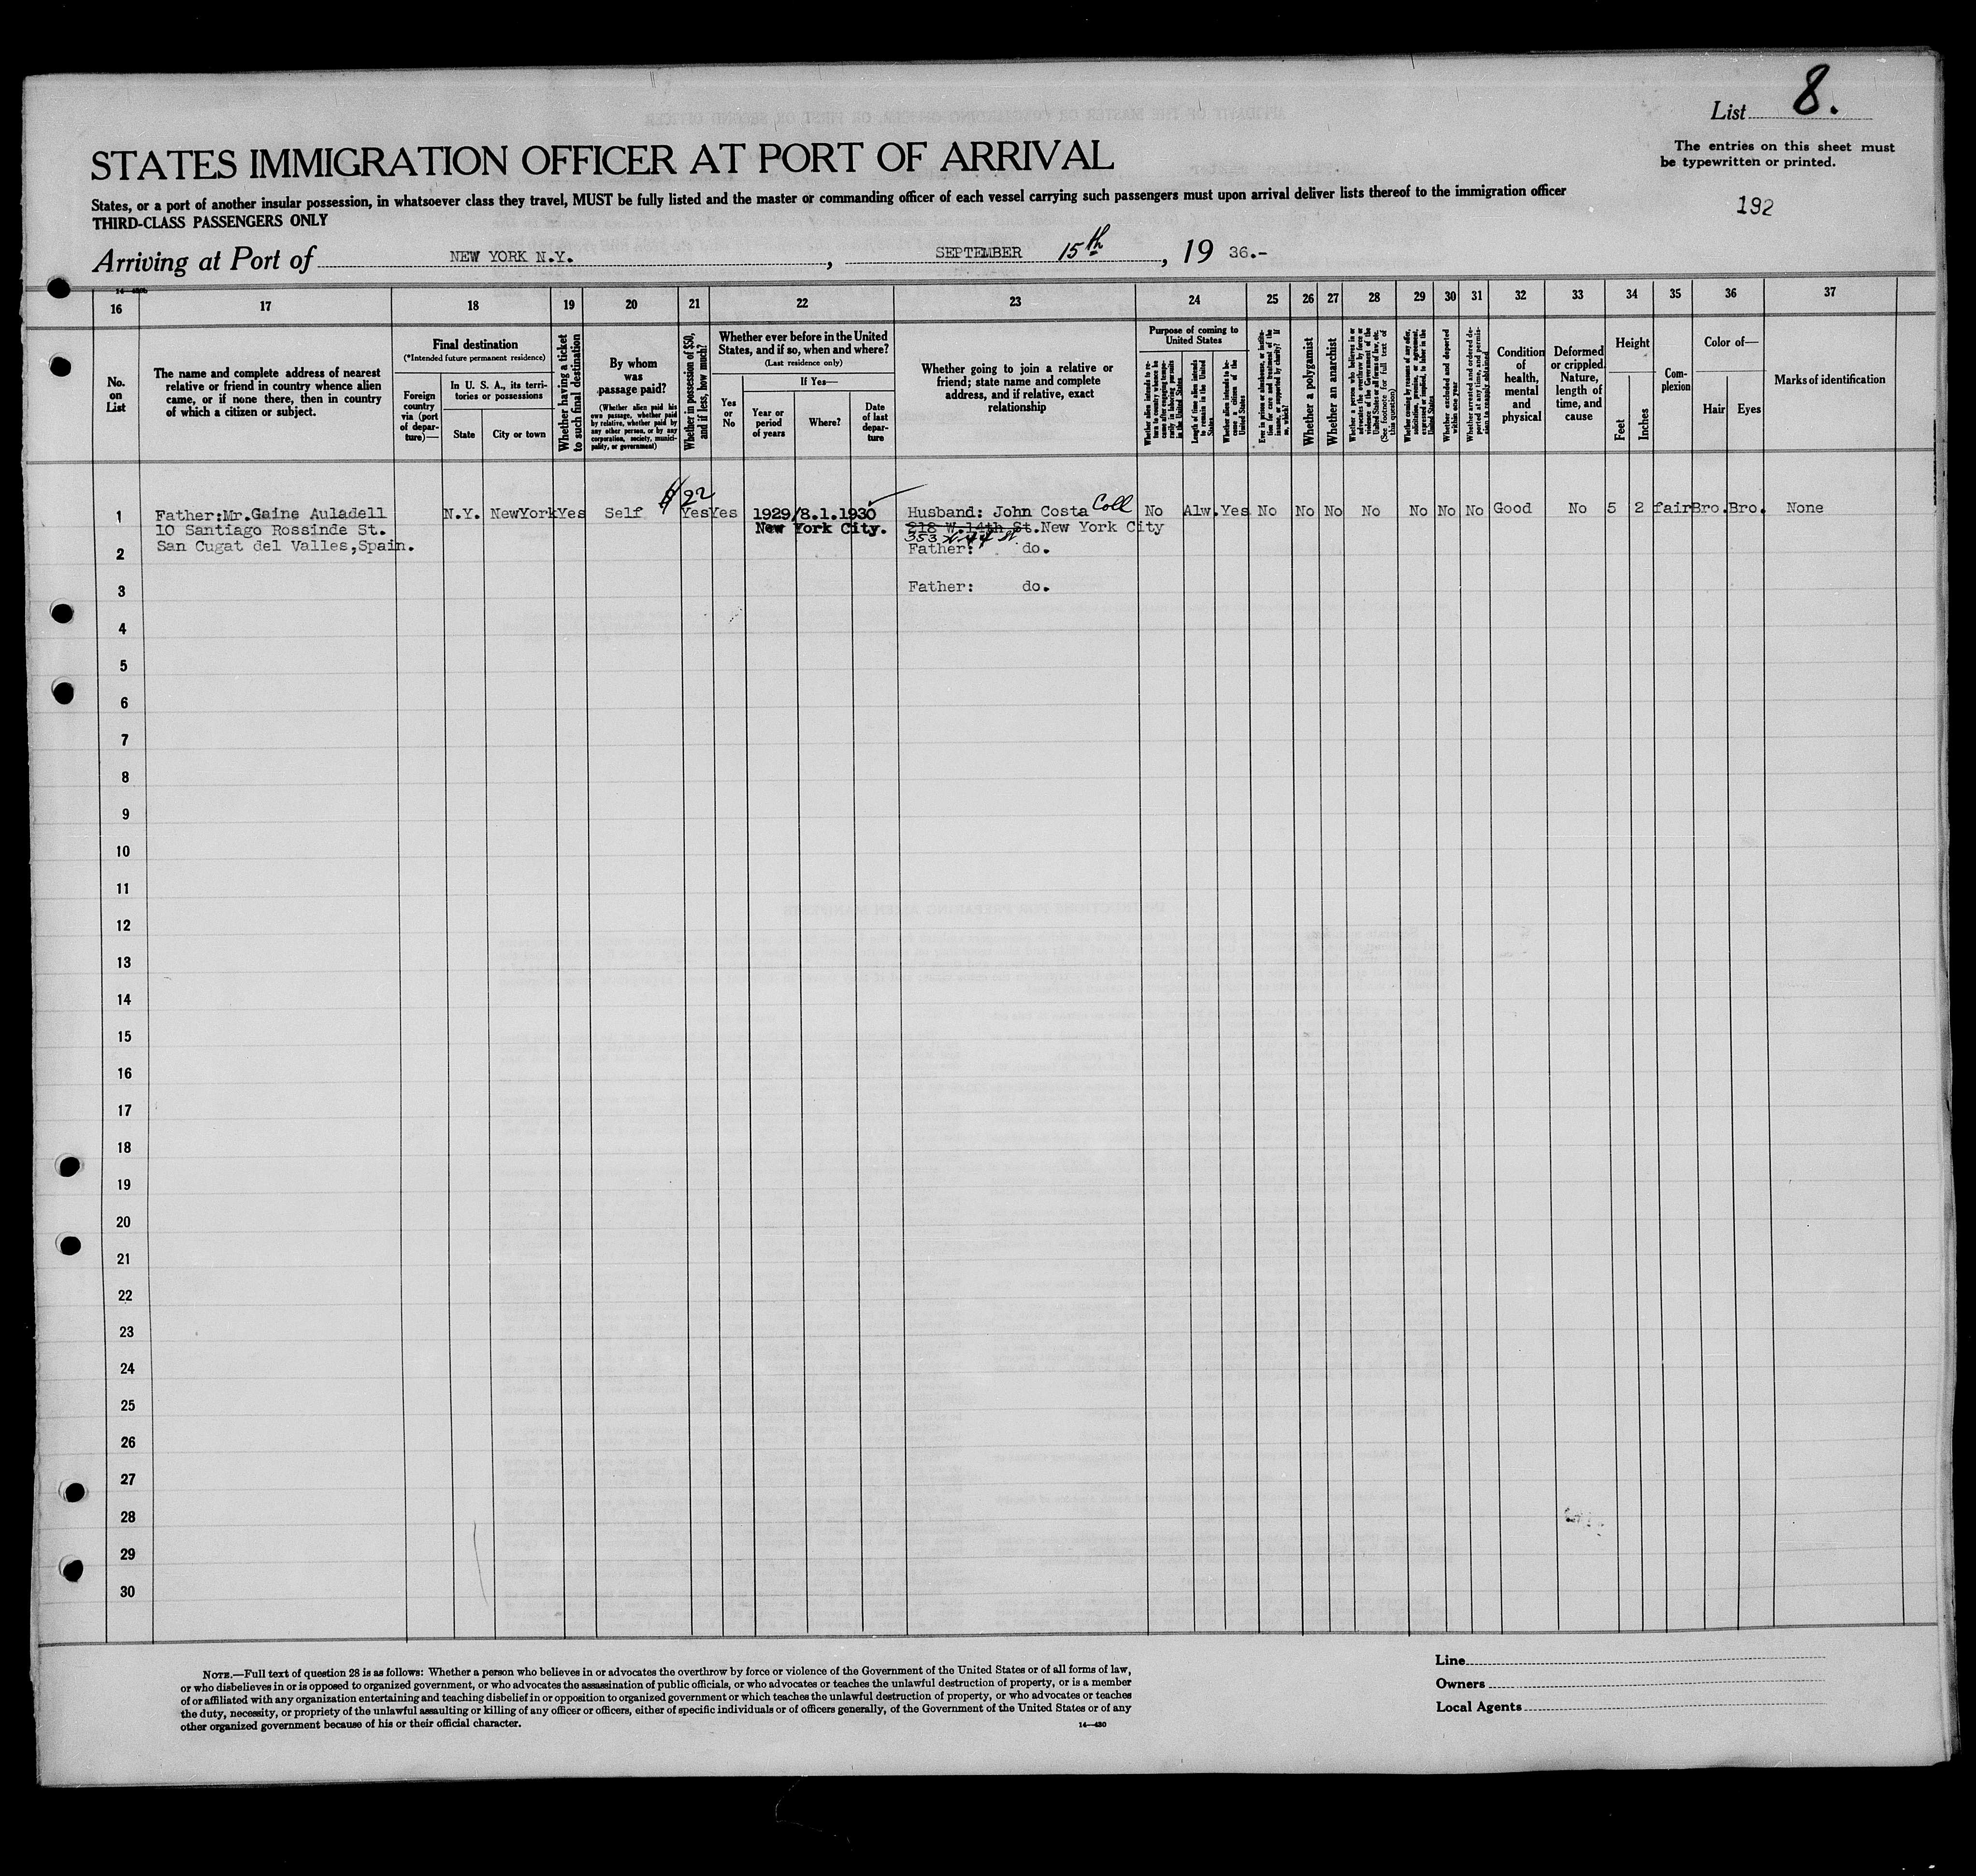 List 8.
The entries on this sheet must
be typewritten or printed.
192
STATES IMMIGRATION OFFICER AT PORT OF ARRIVAL
States, or a port of another insular possession, in whatsoever class they travel, MUST be fully listed and the master or commanding officer of each vessel carrying such passengers must upon arrival deliver lists thereof to the immigration officer
THIRD-CLASS PASSENGERS ONLY
Arriving at Port of NEW YORK N.Y. , SEPTEMBER 15th , 19 36.-
16 17 18 19 20 21 22 23 24 25 26 27 28 29 30 31 32 33 34 35 36 37
No.
on
List
The name and complete address of nearest
relative or friend in country whence alien
came, or if none there, then in country
of which a citizen or subject.
Final destination
(*Intended future permanent residence)
Foreign
country
via (port
of depar-
ture)—
In U. S. A., its terri-
tories or possessions
State
City or town
Whether having a ticket
to such final destination
By whom
was
passage paid?
(Whether alien paid his
own passage, whether paid
by relative, whether paid by
any other person, or by any
corporation, society, munici-
pality, or government)
Whether in possession of $50,
and if less, how much?
Whether ever before in the United
States, and if so, when and where?
(Last residence only)
Yes
or
No
If Yes—
Year or
period
of years
Where?
Date
of last
depar-
ture
Whether going to join a relative or
friend; state name and complete
address, and if relative, exact
relationship
Purpose of coming to
United States
Length of time alien intends
to remain in the United
States
Whether alien intends to be-
come a citizen of the
United States
Whether a polygamist
Whether an anarchist
Whether excluded and deported
within one year
Condition
of
health,
mental
and
physical
Deformed
or crippled.
Nature,
length of
time, and
cause
Height
Feet
Inches
Com-
plexion
Color of—
Hair
Eyes
Marks of identification
$ 22
1 Father:Mr.Gaine Auladell N.Y. NewYork Yes Self Yes Yes 1929/8.1.1930 Husband: John Costa Coll No Alw. Yes No No No No No No No Good No 5 2 fair Bro. Bro. None
10 Santiago Rossinde St. New York City. 218 W.14th St.New York City
353
San Cugat del Valles,Spain.
2 Father: do.
3 Father: do.
4
5
6
7
8
9
10
11
12
13
14
15
16
17
18
19
20
21
22
23
24
25
26
27
28
29
30
NOTE.—Full text of question 28 is as follows: Whether a person who believes in or advocates the overthrow by force or violence of the Government of the United States or of all forms of law,
or who disbelieves in or is opposed to organized government, or who advocates the assassination of public officials, or who advocates or teaches the unlawful destruction of property, or is a member
of or affiliated with any organization entertaining and teaching disbelief in or opposition to organized government or which teaches the unlawful destruction of property, or who advocates or teaches
the duty, necessity, or propriety of the unlawful assaulting or killing of any officer or officers, either of specific individuals or of officers generally, of the Government of the United States or of any
other organized government because of his or their official character.
14—430
Line
Owners
Local Agents